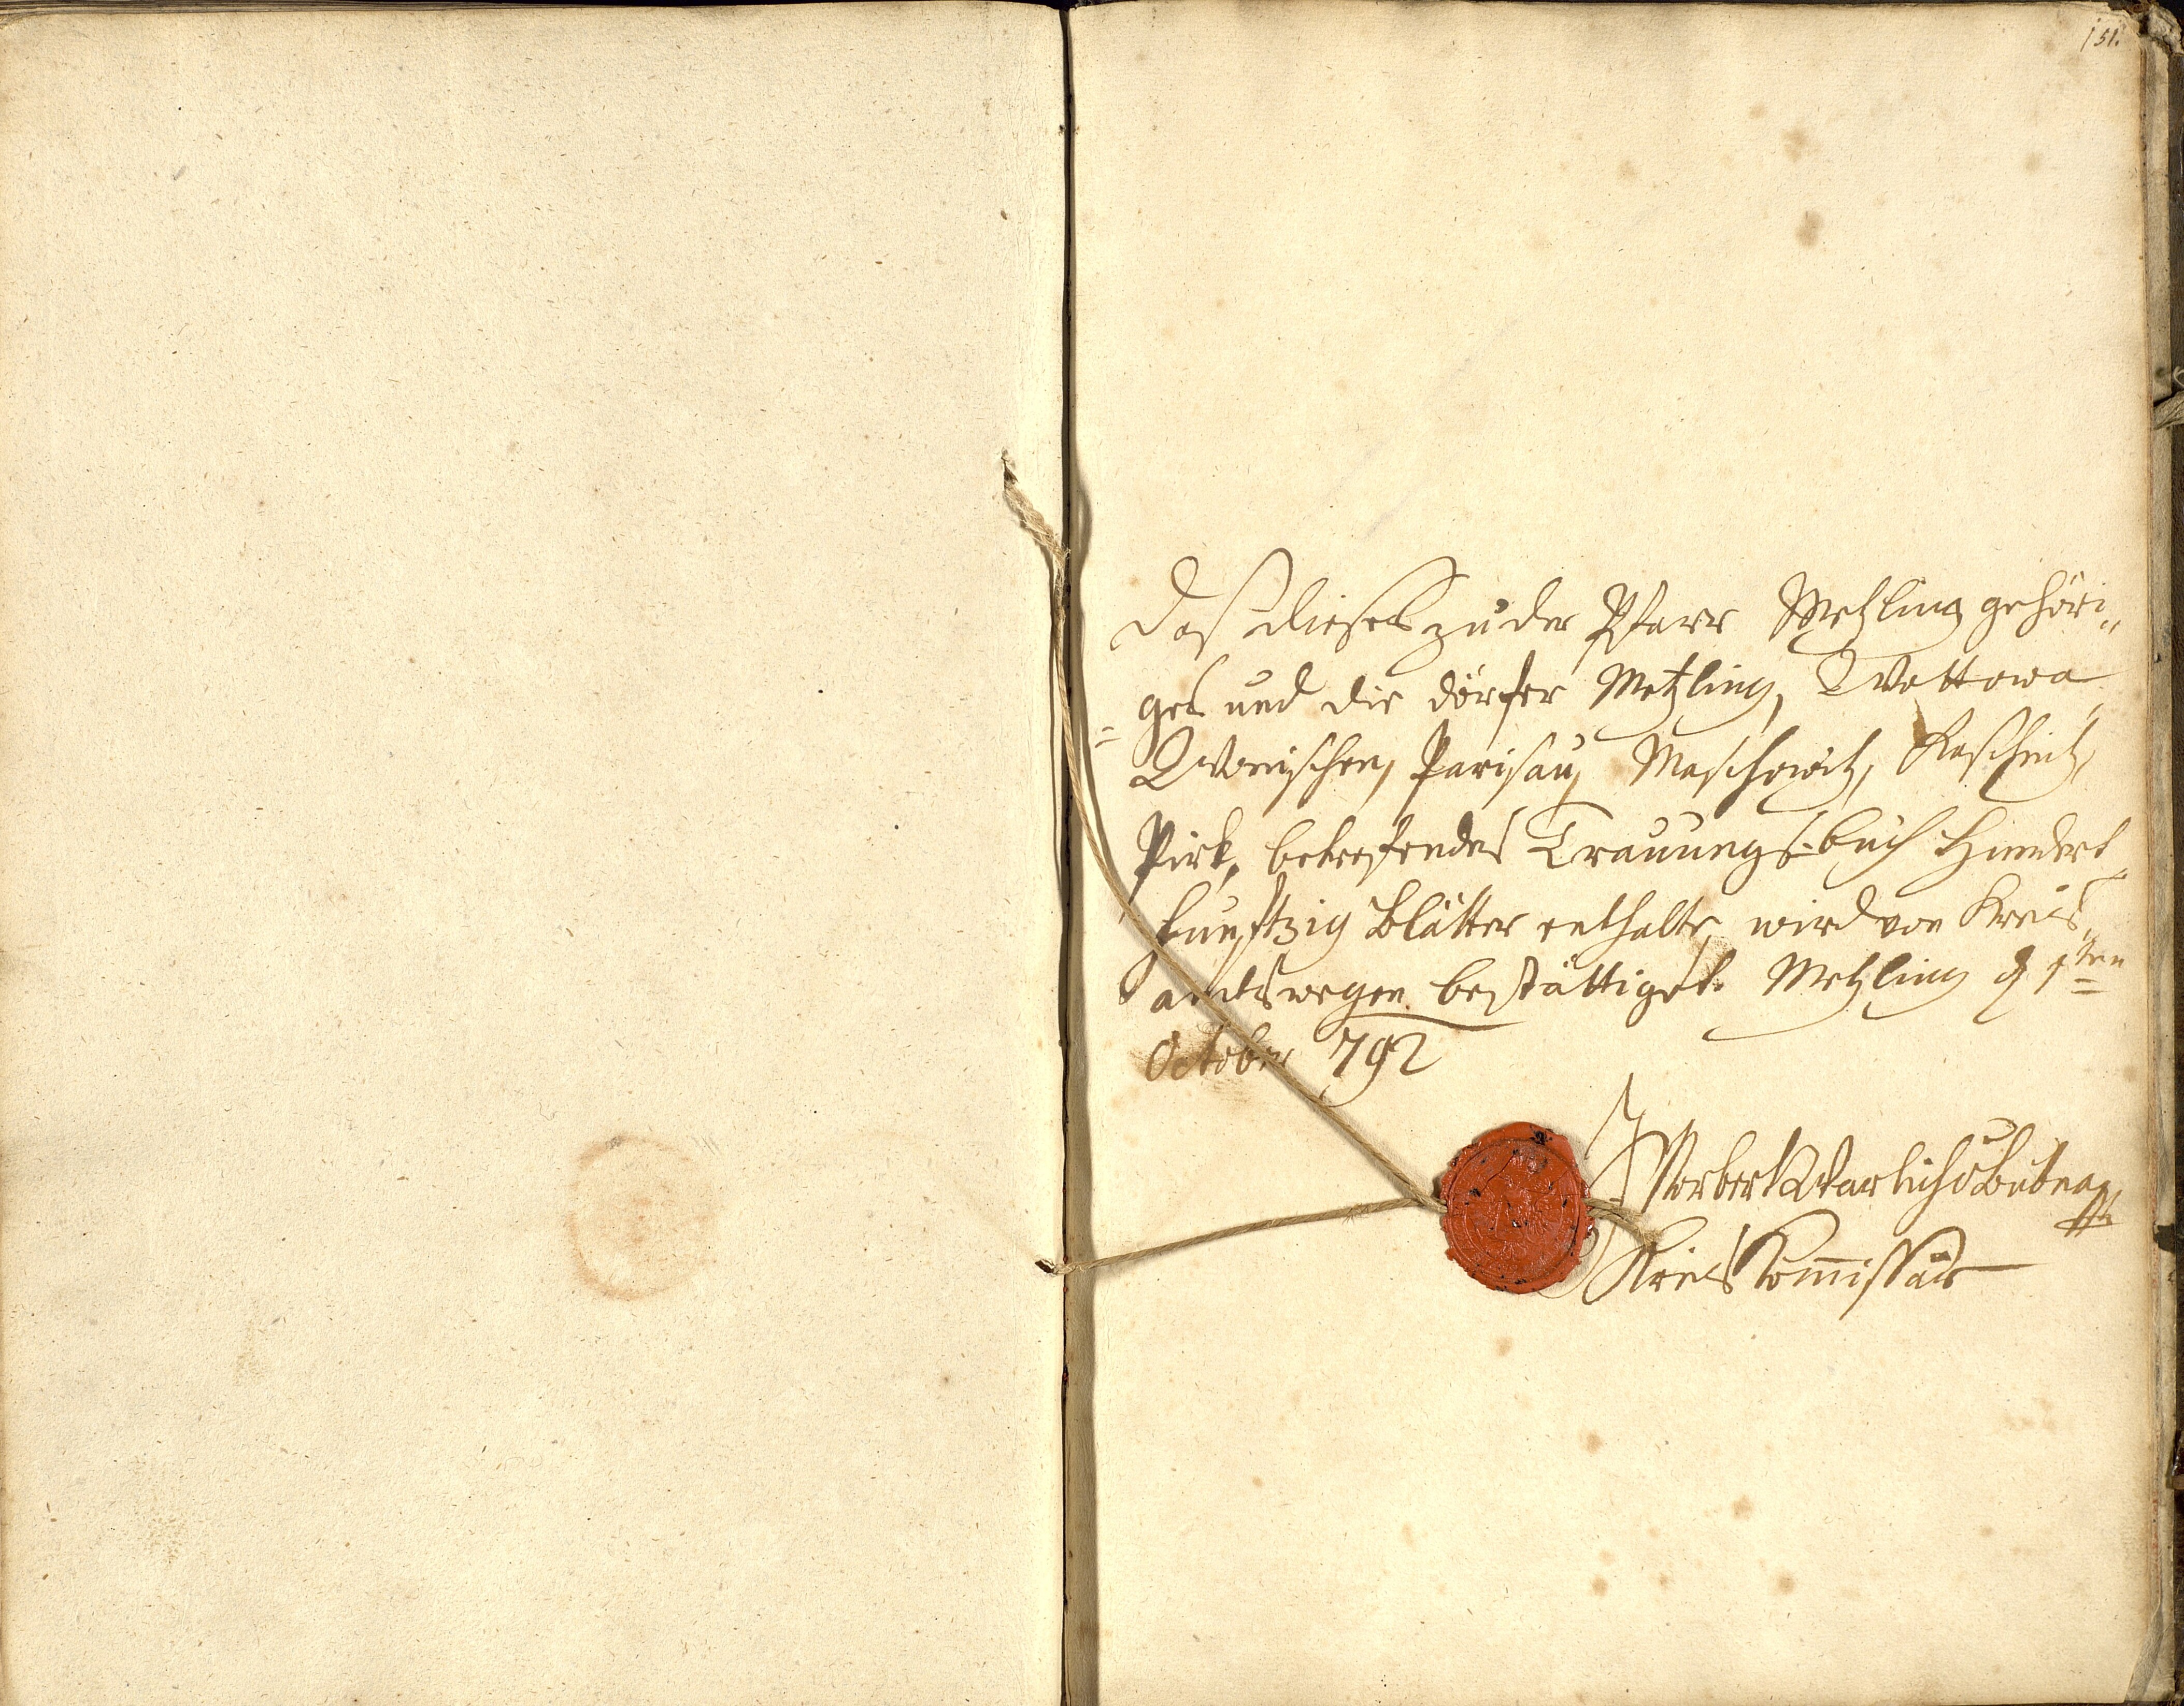 151.
Daß dieses zu der Pfarr Metzling gehöri„
ges und die dörfer Metzling, Wottowa„
= Wonischen, Parisau, Maschowitz, Raschnitz,
Pirk, betrefendes Trauungs-buch Hundert„
funftzig Blätter enthalte wird von Kreis„
amtswegen bestättiget. Metzling d 1ten
October 792
Norbert
Kreis Kommissär